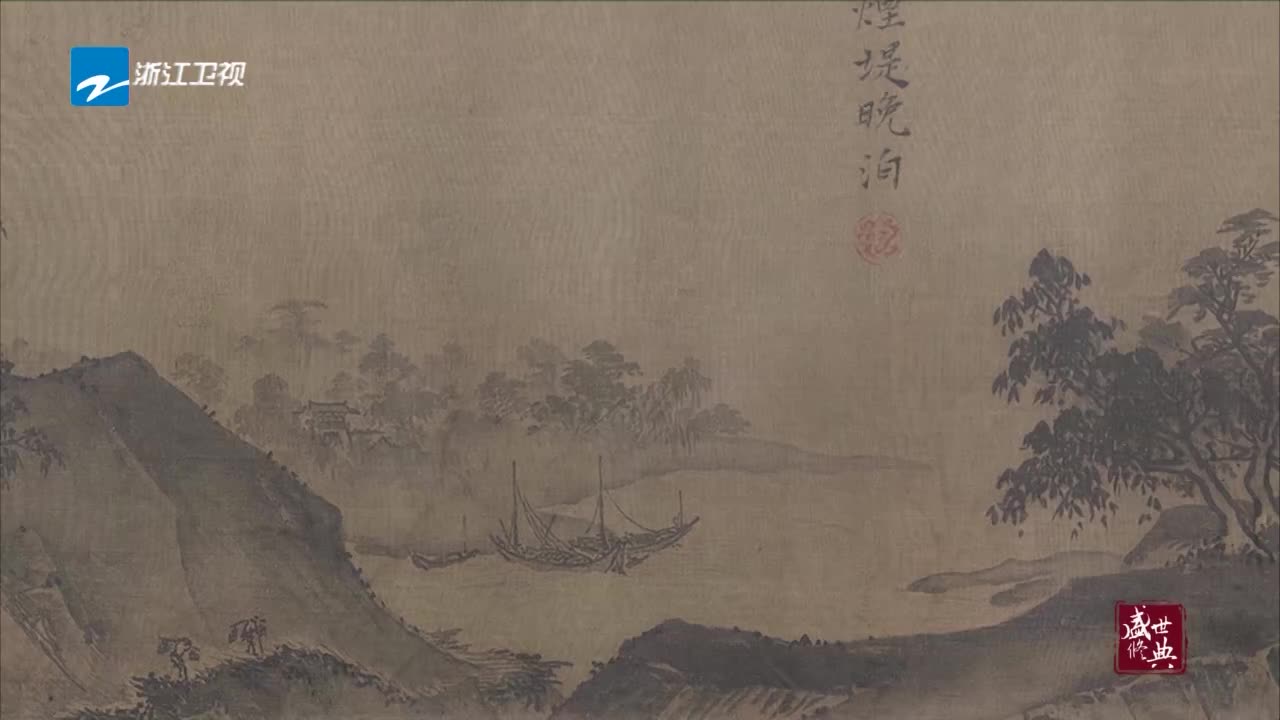 浙江卫视
煙堤晚泊
盛世修典